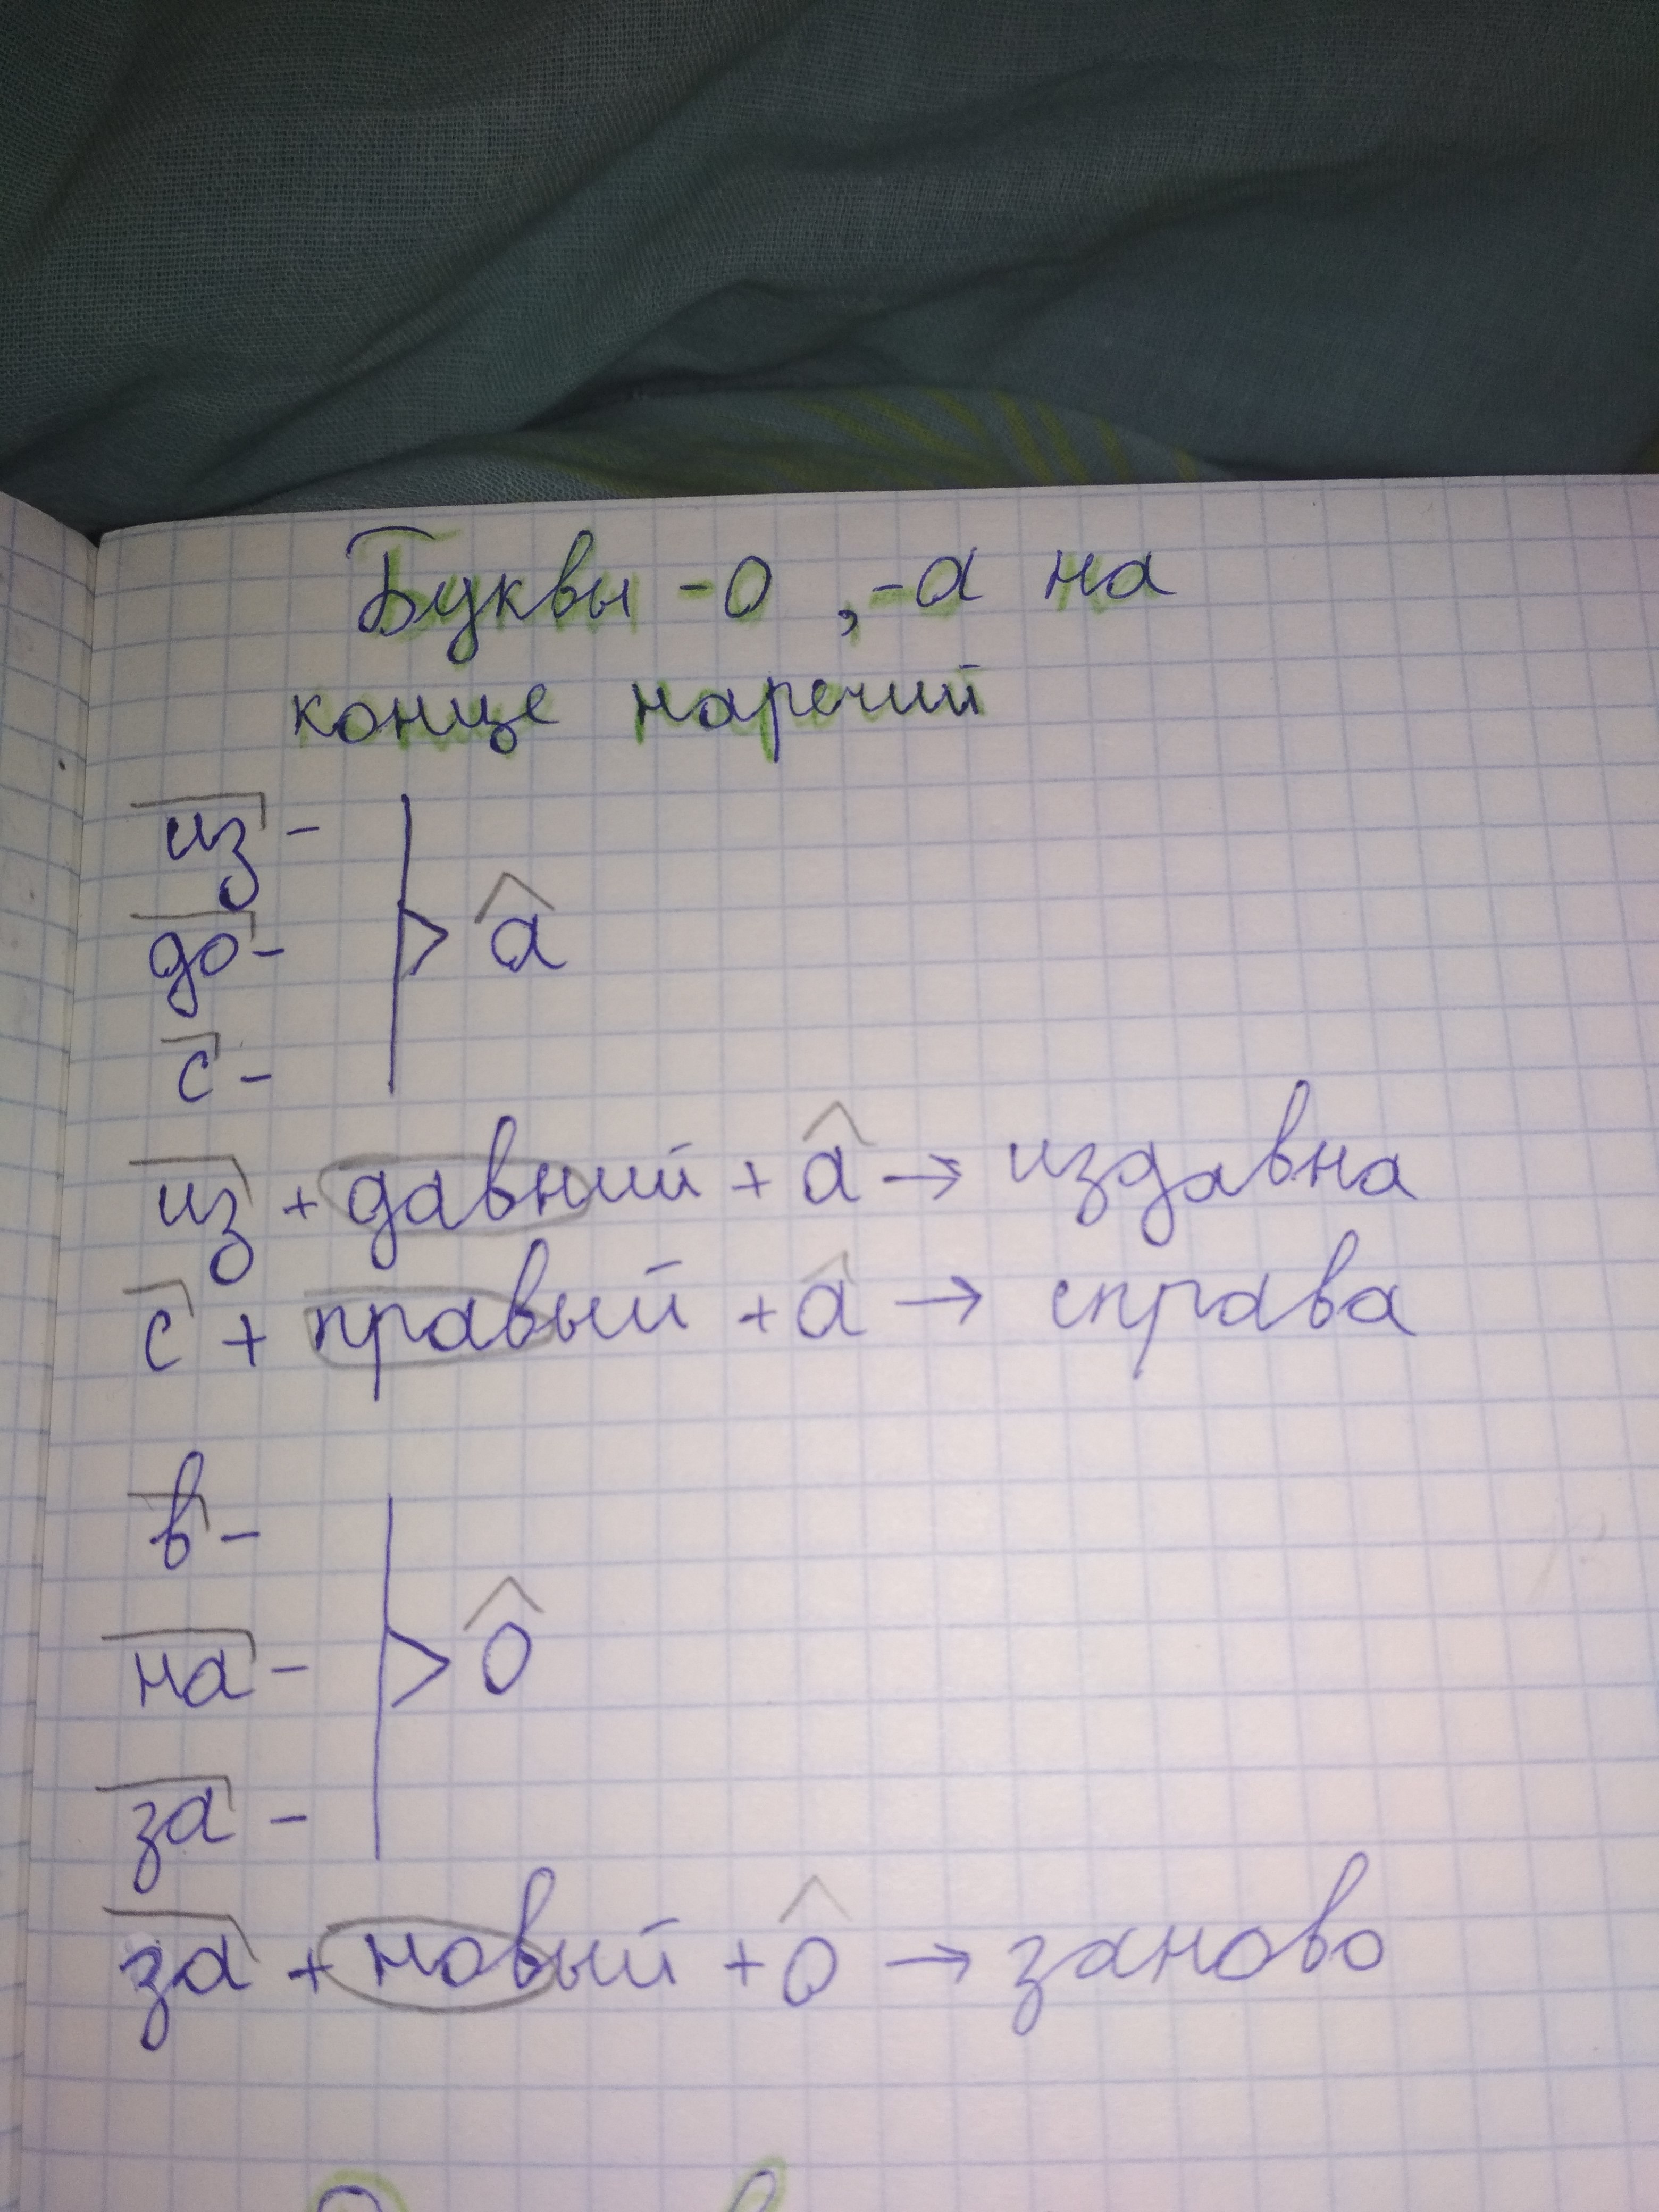 Буквы -о, -а на
конце наречий
из-
до-
с-
> а
из + давний + а → издавна
с + правый + а → справа
в-
на-
за-
> о
за + новый + о → заново